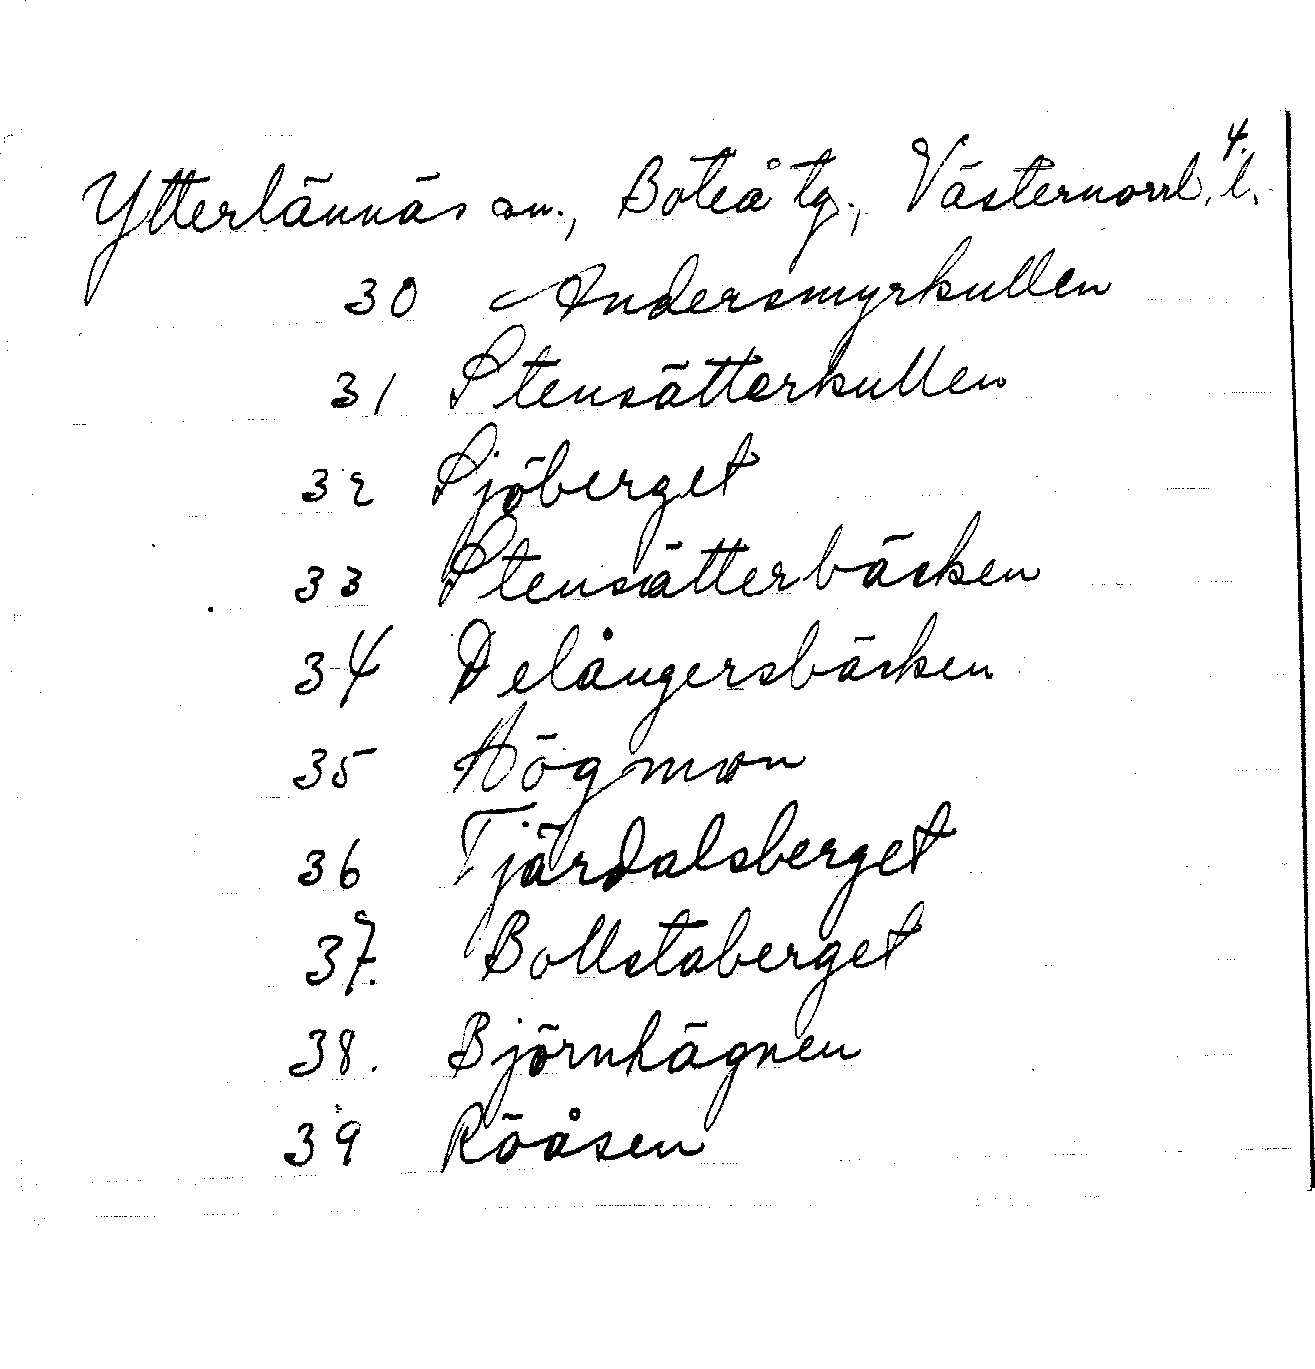 4.
Ytterlännäs sn., Boteå tg., Västernorrl. l.
30 Andersmyrkullen
31 Stensätterkullen
32 Sjöberget
33 Stensätterbäcken
34 Delångersbäcken
35 Högmon
36 Tjärdalsberget
37. Bollstaberget
38. Björnhägnen
39 Röåsen